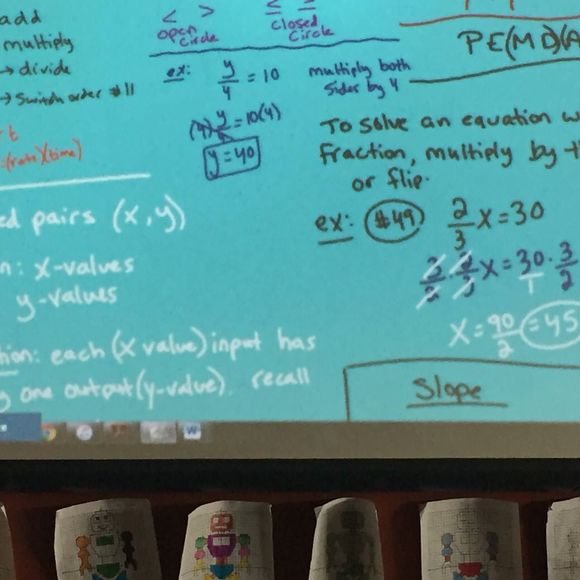 add
multiply
→ divide
→ switch order #11
=(rate)(time)
< >
open circle
≤ ≥
closed circle
ex: y/4 = 10
(4) y/4 = 10(4)
y = 40
multiply both sides by 4
PE(MD)(A
To solve an equation w
fraction, multiply by
or flip.
ex: #49 2/3 x = 30
3/2 · 2/3 x = 30 · 3/2
x = 90/2 = 45
ed pairs (x,y)
n: x-values
y-values
tion: each (x value) input has
one output (y-value). recall
Slope
W